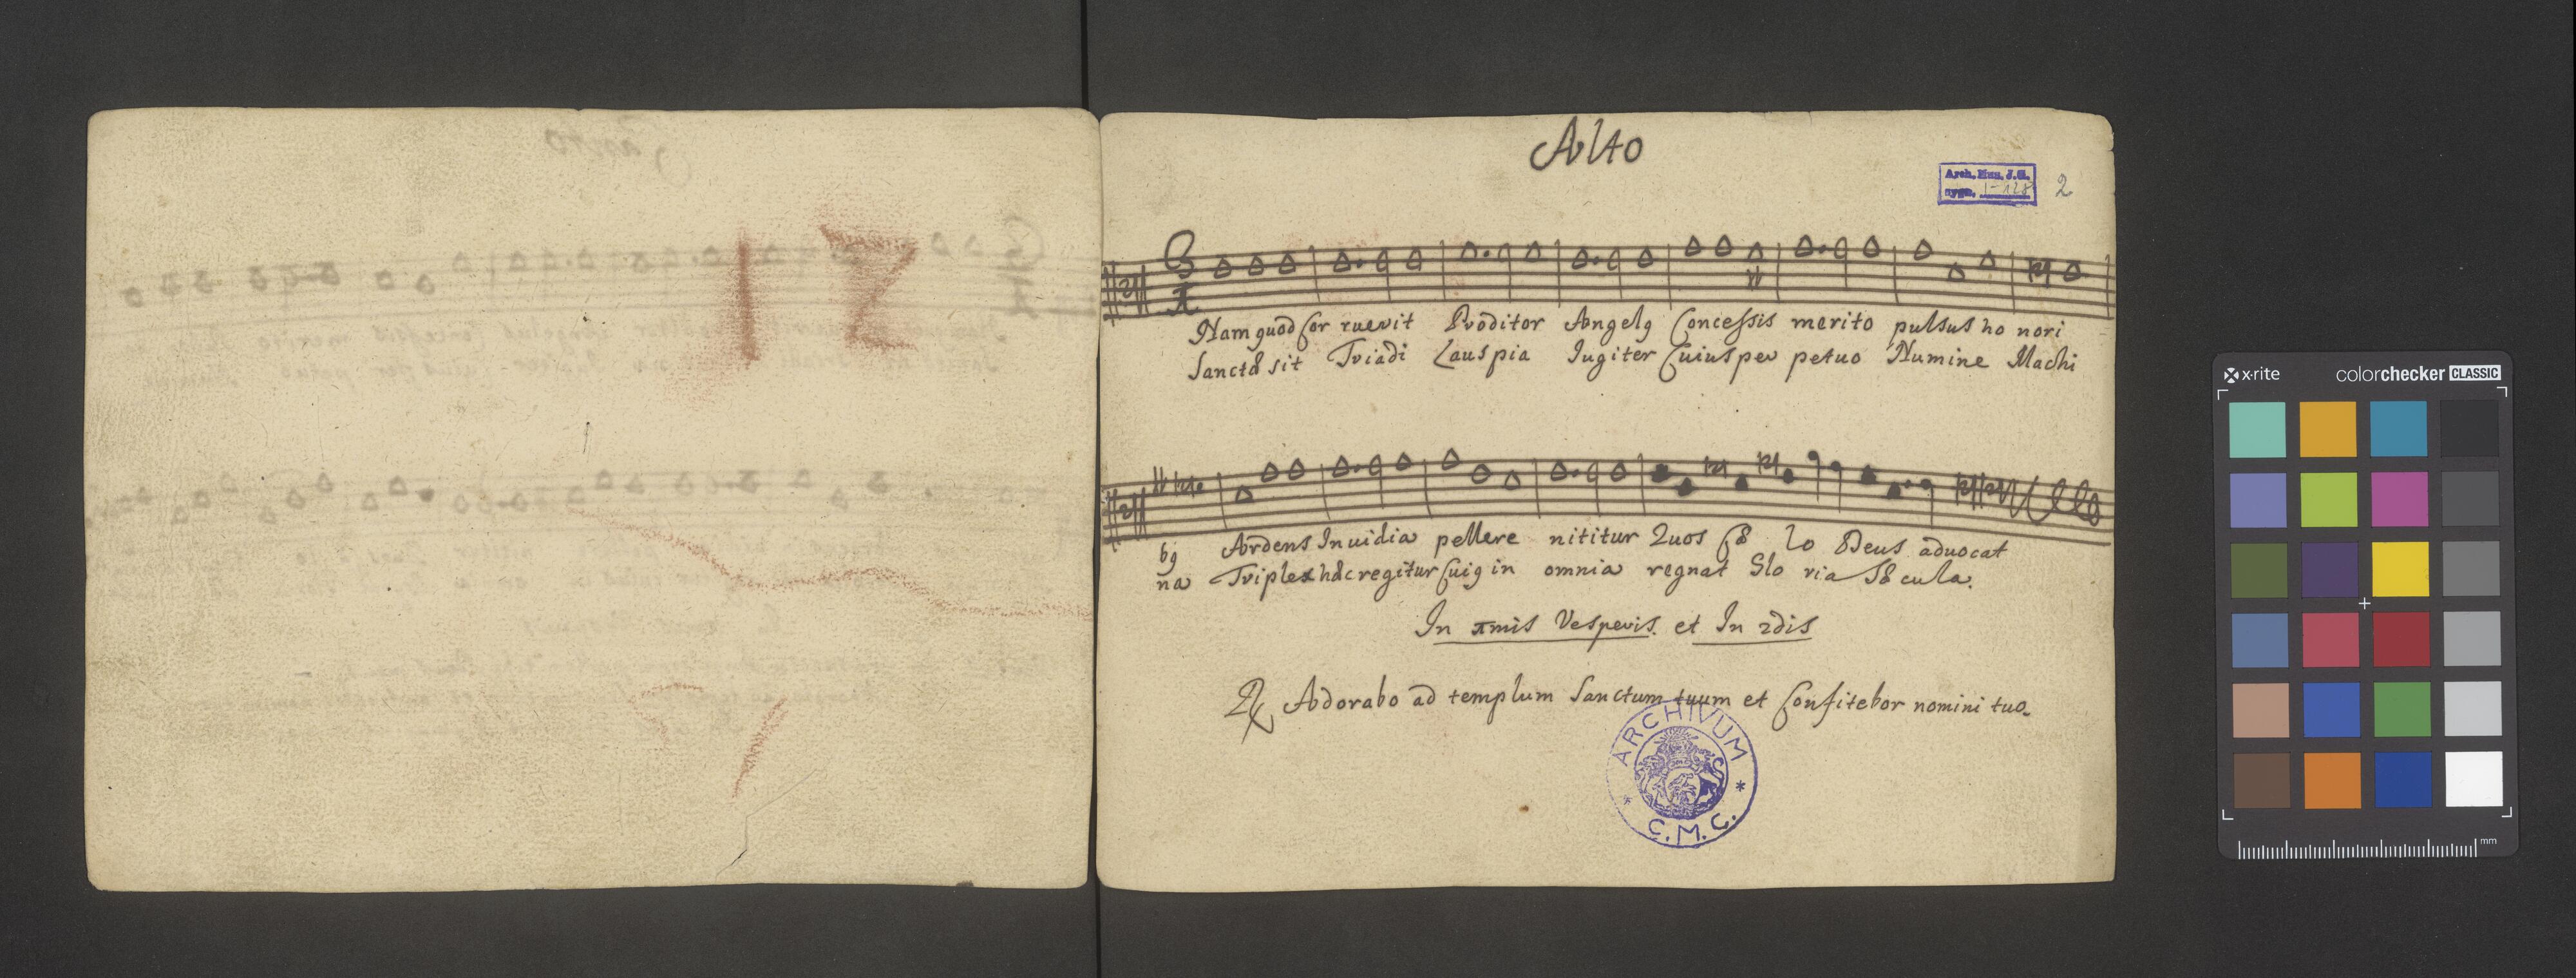 12
Alto
Arch. Mus. J.G.
sygn. I-128
2
Nam quod Cor ruerit Proditor Angelg Concessis merito pulsus ho nori
Sanctæ sit Triadi Laus pia Iugiter Cuius per petuo Numine Machi
bg Ardens Inuidia pellere nititur Quos Cæ lo Deus aduocat
na Triplex hæc regitur Cuig in omnia regnat Glo ria Sæ cula.
In πmis Vesperis. et In 2dis
Adorabo ad templum Sanctum tuum et Confitebor nomini tuo.
ARCHIVUM
* C.M.C. *
x·rite colorchecker CLASSIC
mm